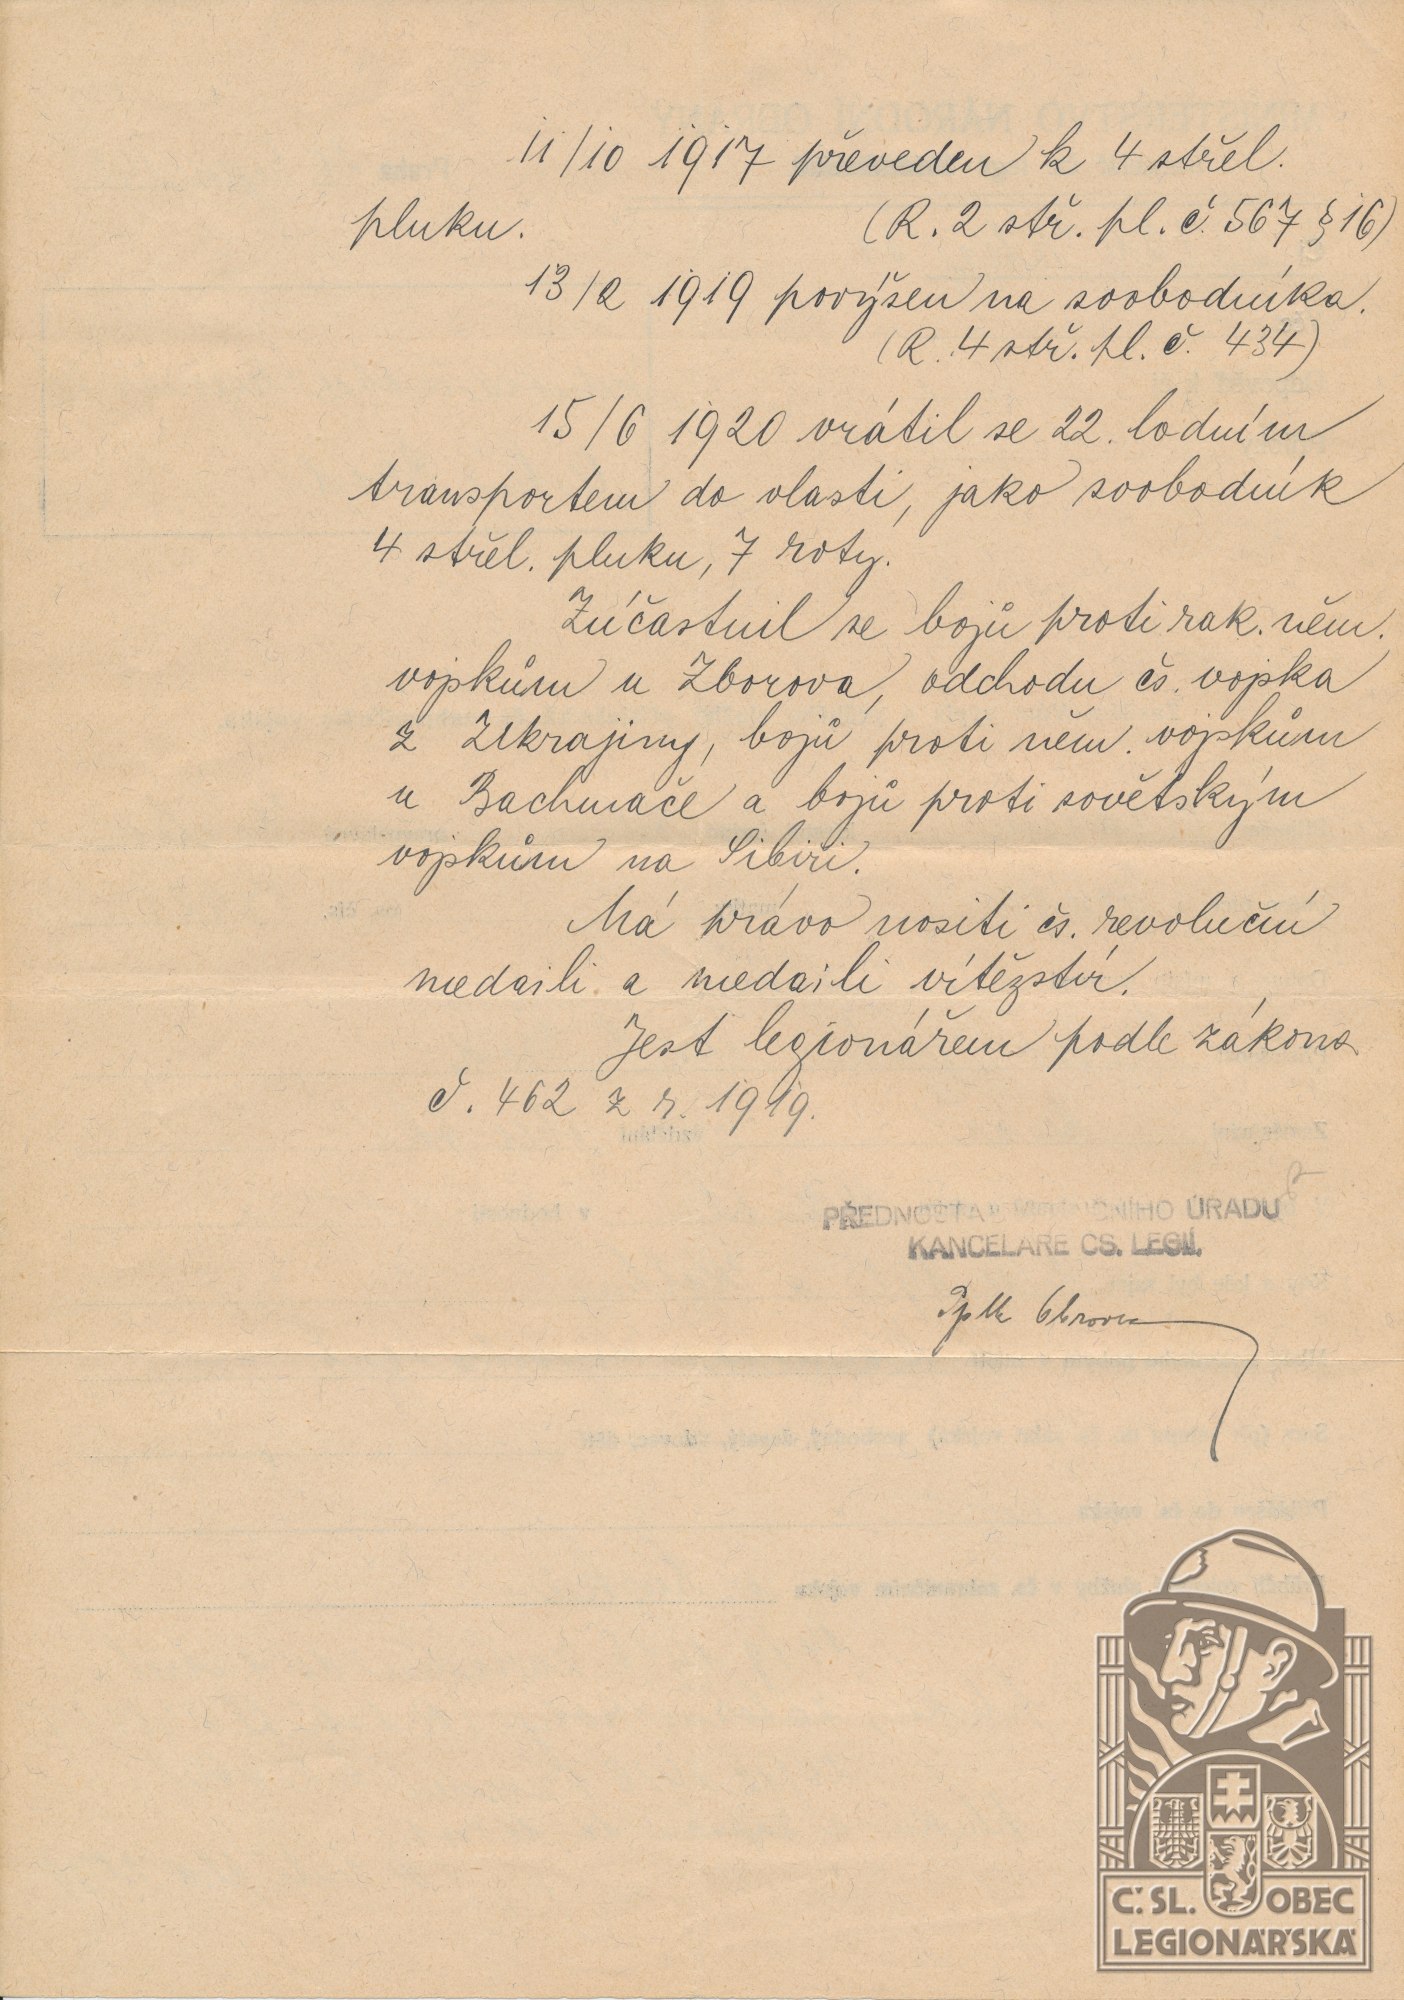 11/10 1917 převeden k 4 střel.
pluku. (R. 2 stř. pl. č. 567 § 16)
13/2 1919 povýšen na svobodníka.
(R. 4 stř. pl. č. 434)
15/6 1920 vrátil se 22. lodním
transportem do vlasti, jako svobodník
4 střel. pluku, 7 roty.
Zúčastnil se bojů proti rak. něm.
vojskům u Zborova, odchodu čs. vojska
z Ukrajiny, bojů proti něm. vojskům
u Bachmače a bojů proti sovětským
vojskům na Sibiři.
Má právo nositi čs. revoluční
medaili a medaili vítězství.
Jest legionářem podle zákona
č. 462 z r. 1919.
PŘEDNOSTA ÚŘADU
KANCELÁŘE ČS. LEGIÍ.
Pplk
Č.SL. OBEC
LEGIONÁŘSKÁ